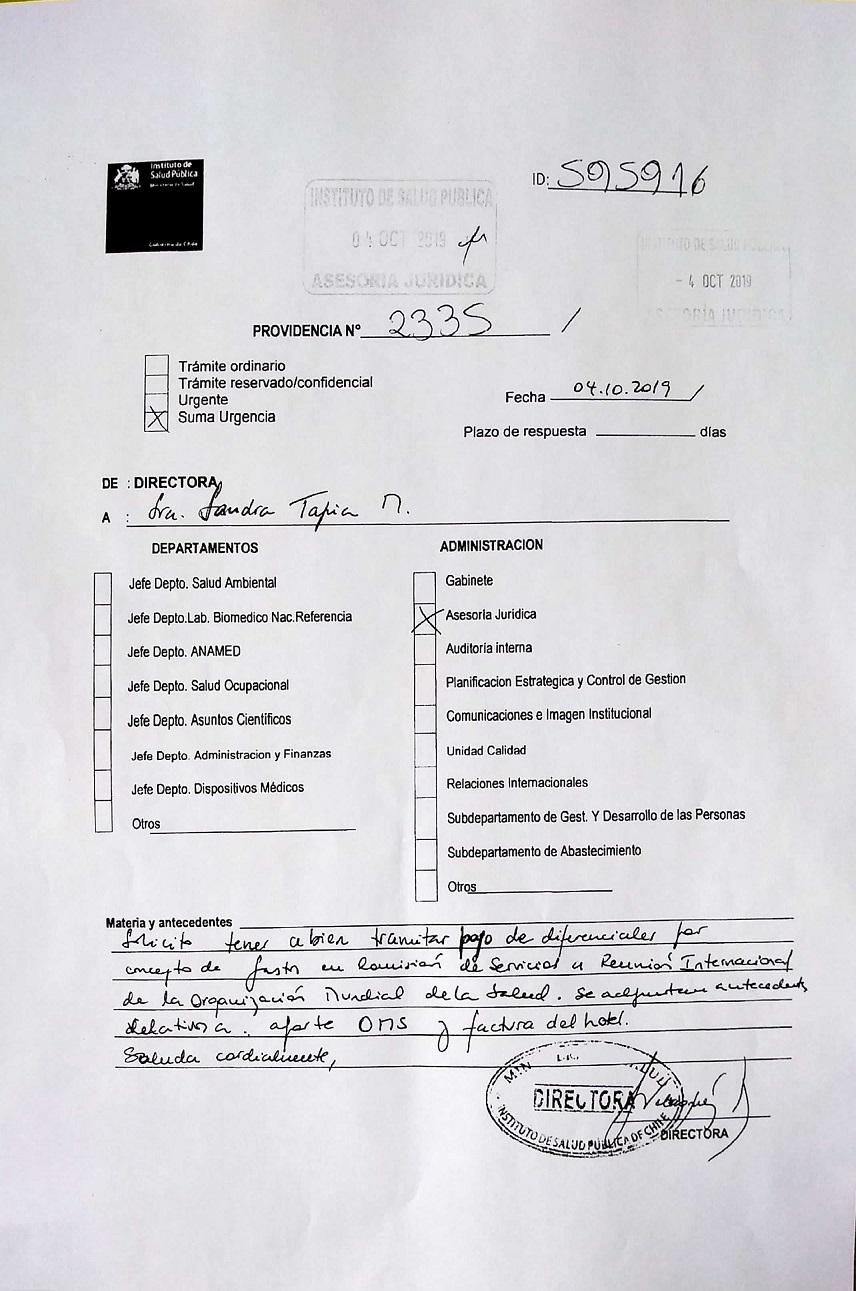 Instituto de
Salud Pública
Ministerio de Salud
Gobierno de Chile
INSTITUTO DE SALUD PUBLICA
04 OCT 2019
ASESORIA JURIDICA
ID: 595916
INSTITUTO DE SALUD PUBLICA
- 4 OCT 2019
ASESORÍA JURIDICA
PROVIDENCIA N° 2335 /
Trámite ordinario
Trámite reservado/confidencial
Urgente
X Suma Urgencia
Fecha 04.10.2019 /
Plazo de respuesta ______ días
DE : DIRECTORA
A : Sra. Sandra Tapia M.
DEPARTAMENTOS
Jefe Depto. Salud Ambiental
Jefe Depto.Lab. Biomedico Nac.Referencia
Jefe Depto. ANAMED
Jefe Depto. Salud Ocupacional
Jefe Depto. Asuntos Científicos
Jefe Depto. Administracion y Finanzas
Jefe Depto. Dispositivos Médicos
Otros
ADMINISTRACION
Gabinete
X Asesoria Juridica
Auditoria interna
Planificacion Estrategica y Control de Gestion
Comunicaciones e Imagen Institucional
Unidad Calidad
Relaciones Internacionales
Subdepartamento de Gest. Y Desarrollo de las Personas
Subdepartamento de Abastecimiento
Otros
Materia y antecedentes
Solicito tener a bien tramitar pago de diferenciales por
concepto de gasto en Comisión de Servicios a Reunión Internacional
de la Organización Mundial de la Salud. Se adjuntan antecedentes
relativos a. aporte OMS y factura del hotel.
Saluda cordialmente,
DIRECTORA
INSTITUTO DE SALUD PÚBLICA DE CHILE
DIRECTORA